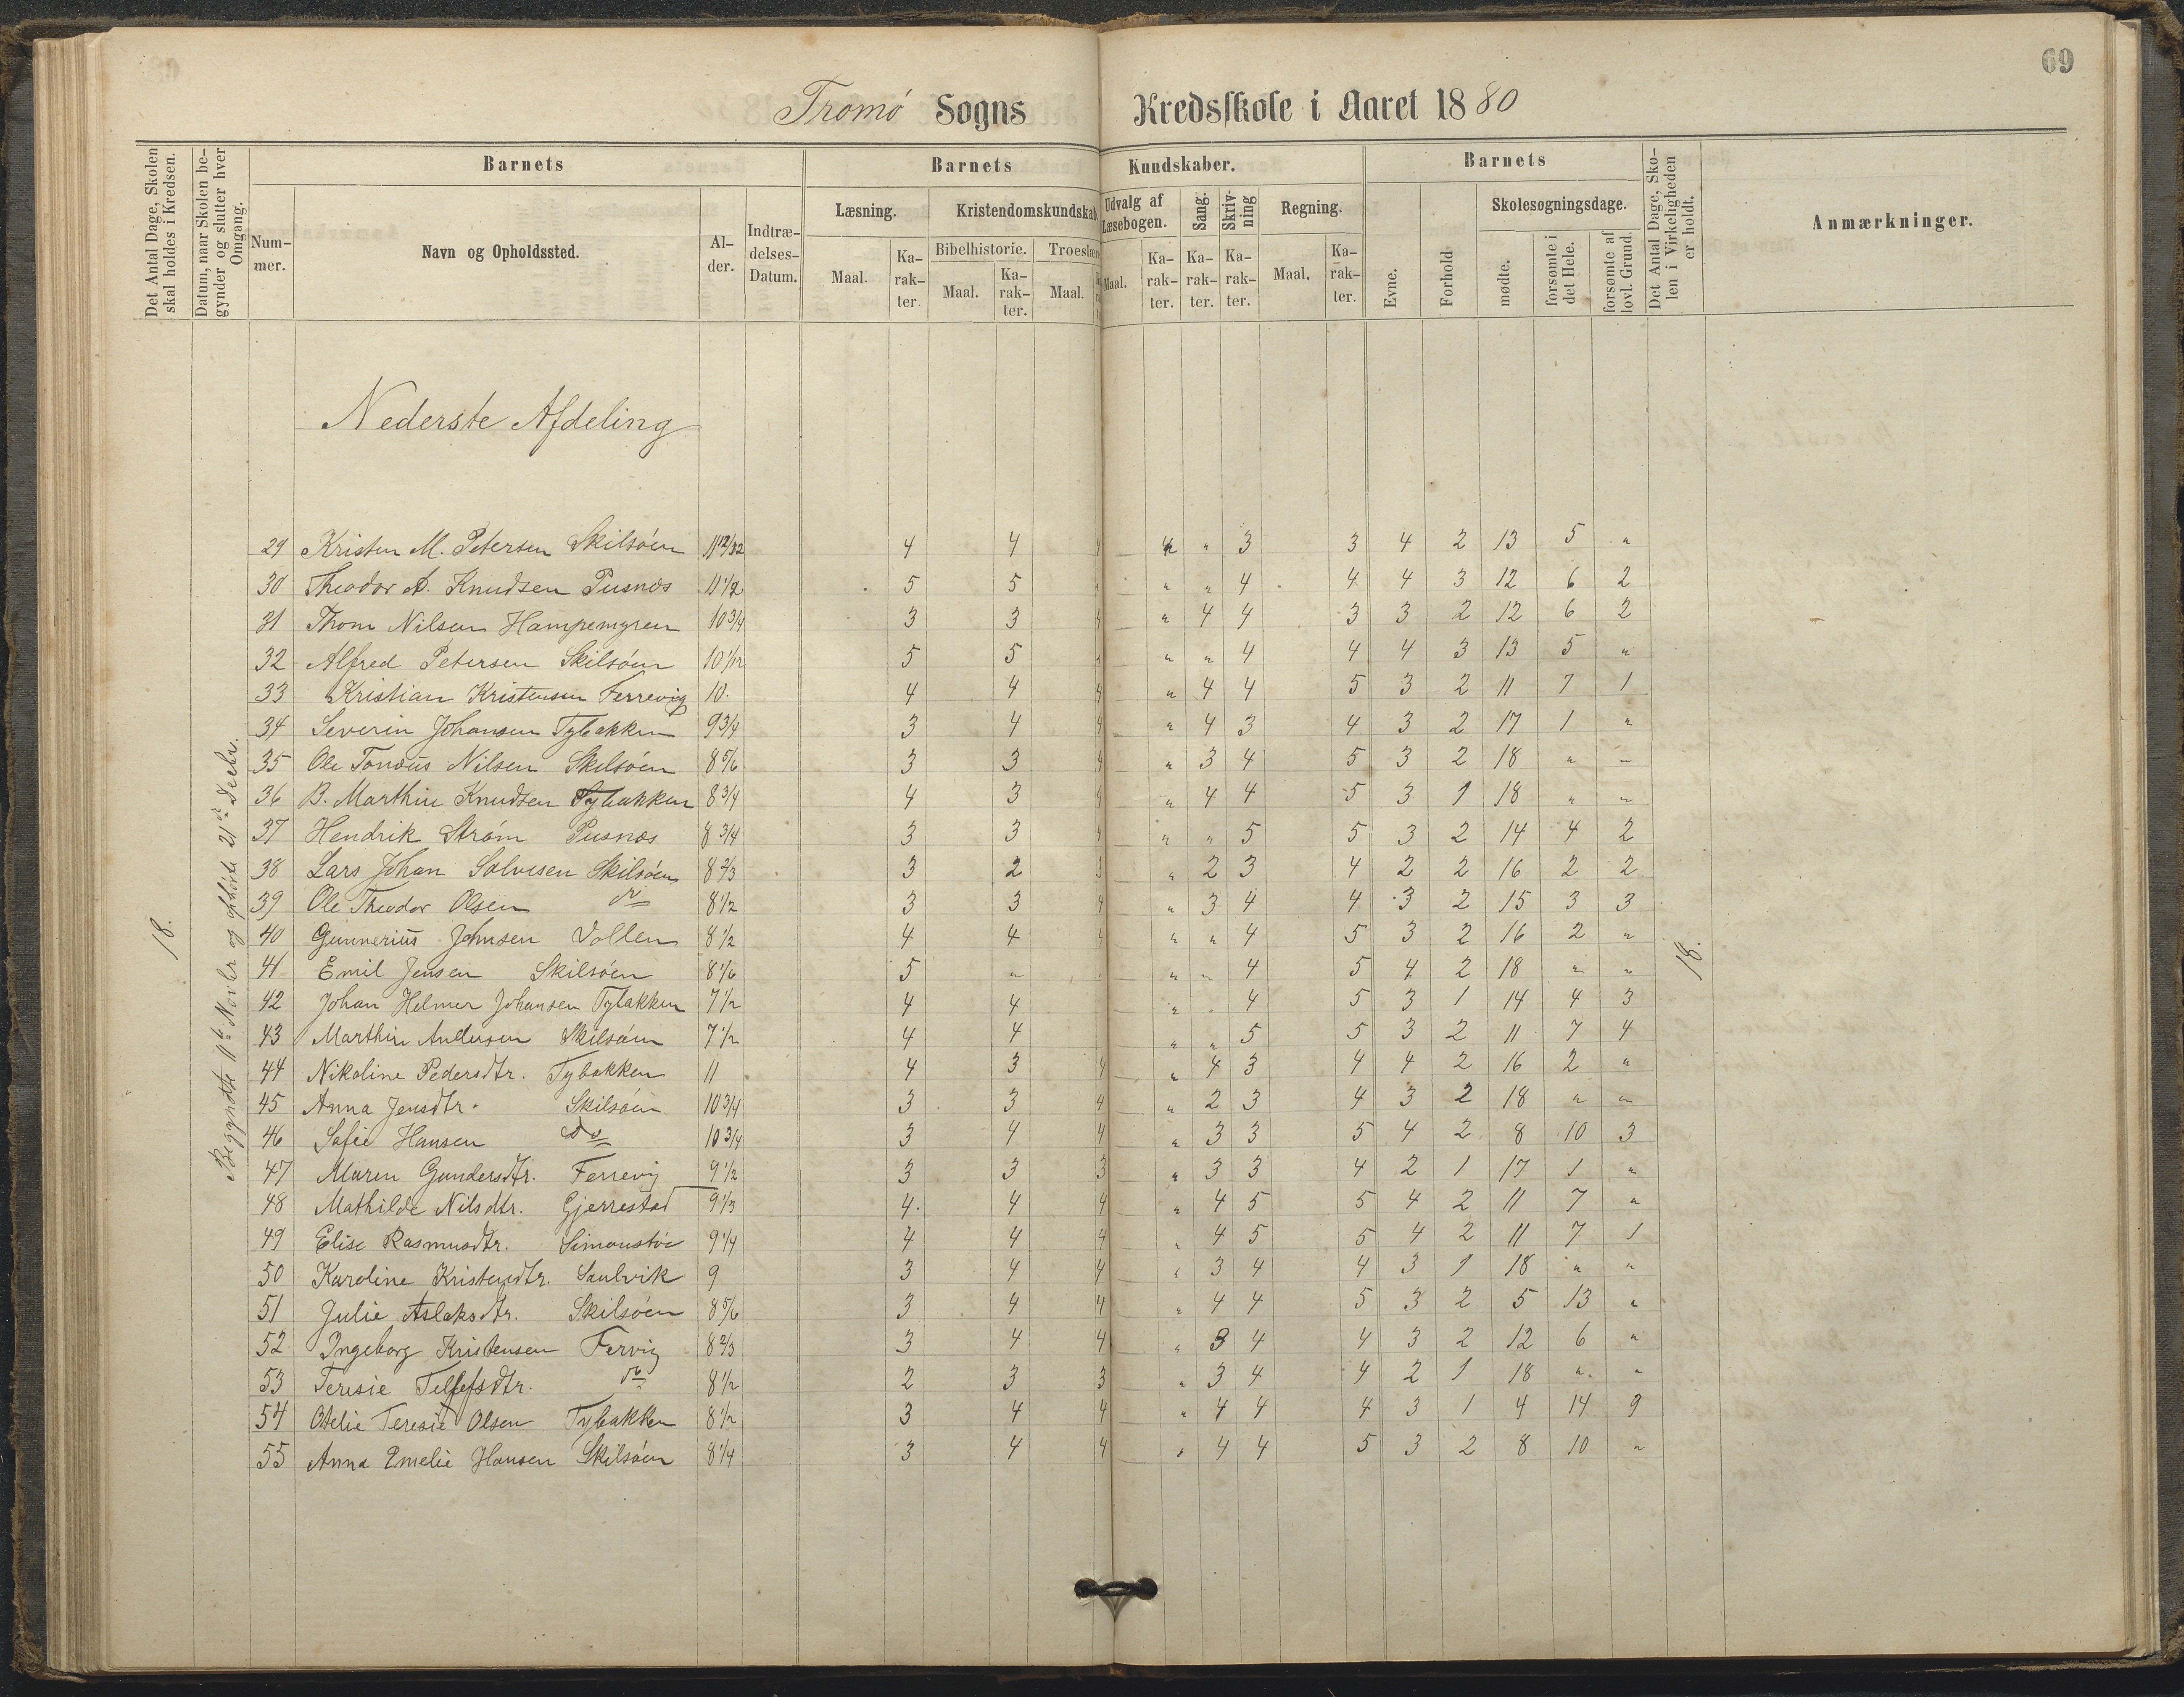 69
Tromö Sogns Kredsskole i Aaret 1880
Det Antal Dage, Skolen skal holdes i Kredsen.
Datum, naar Skolen begynder og slutter hver Omgang.
Barnets
Nummer.
Navn og Opholdssted.
Alder.
Indtrædelses-Datum.
Barnets Kundskaber.
Læsning.
Maal.
Karakter.
Kristendomskundskab.
Bibelhistorie.
Maal.
Karakter.
Troeslære
Maal.
Udvalg af Læsebogen.
Maal.
Karakter.
Sang.
Karakter.
Skrivning
Karakter.
Regning.
Maal.
Karakter.
Barnets
Evne.
Forhold.
Skolesøgningsdage.
mødte.
forsømte i det Hele.
forsømte af lovl. Grund.
Det Antal Dage, Skolen i Virkeligheden er holdt.
Anmærkninger.
Nederste Afdeling
18.
Begyndte 11te Novbr og ophörte 21de Decbr.
18.
29 Kristen M. Petersen Skilsöen 4 4 4 " 3 3 4 2 13 5 "
30 Theodor A. Knudsen Pusnæs 11 1/2 5 5 " " " 4 4 4 3 12 6 2
31 Thom Nilsen Hampemyren 10 3/4 3 3 4 " 4 4 3 3 2 12 6 2
32 Alfred Petersen Skilsöen 10 1/12 5 5 " " " 4 4 4 3 13 5 "
33 Kristian Kristensen Ferrevig 10. 4 4 4 " 4 4 5 3 2 11 7 1
34 Severin Johansen Tybakken 9 3/4 3 4 4 " 4 3 4 3 2 17 1 "
35 Ole Tonæus Nilsen Skilsöen 8 5/6 3 3 4 " 3 4 5 3 2 18 " "
36 B. Marthin Knudsen Tybakken 8 3/4 4 3 4 " 4 4 5 3 1 18 " "
37 Hendrik Ström Pusnæs 8 3/4 3 3 4 " " 5 5 3 2 14 4 2
38 Lars Johan Solvesen Skilsöen 8 2/3 3 2 3 " 2 3 4 2 2 16 2 2
39 Ole Theodor Olsen do 8 1/2 3 3 4 " 3 4 4 3 2 15 3 3
40 Gunnerius Johnsen Vollen 8 1/2 4 4 4 " " 4 5 3 2 16 2 "
41 Emil Jensen Skilsöen 8 1/6 5 " " " 4 5 4 2 18 " "
42 Johan Helmer Johansen Tybakken 7 1/2 4 4 " 4 5 3 1 14 4 3
43 Marthin Andersen Skilsöen 7 1/2 4 4 " " 5 5 3 2 11 7 4
44 Nikoline Pedersdtr. Tybakken 11 4 3 4 " 4 3 4 4 2 16 2 "
45 Anna Jensdtr. Skilsöen 10 3/4 3 3 4 " 2 3 4 3 2 18 " "
46 Sofie Hansen do 10 3/4 3 4 4 " 3 3 5 4 2 8 10 3
47 Maren Gundersdtr. Ferrevig 9 1/2 3 3 3 " 3 3 4 2 1 17 1 "
48 Mathilde Nilsdtr. Gjerrestad 9 1/3 4. 4 4 " 4 5 5 4 2 11 7 "
49 Elise Rasmusdtr. Simonstöe 9 1/4 4 4 4 " 4 5 5 4 2 11 7 1
50 Karoline Kristensdtr. Sandvik 9 3 4 4 " 3 4 4 3 1 18 " "
51 Julie Aslaksdtr. Skilsöen 8 5/6 3 4 4 " 4 4 5 3 2 5 13 "
52 Ingeborg Kristensen Fervig 8 2/3 3 4 4 " 3 4 4 3 2 12 6 "
53 Teresie Tellefsdtr. do 8 1/2 2 3 3 " 3 4 4 2 1 18 " "
54 Otelie Teresie Olsen Tybakken 8 1/2 3 4 4 " 4 4 4 3 1 4 14 9
55 Anna Emelie Hansen Skilsöen 8 1/4 3 4 4 " 4 4 5 3 2 8 10 "